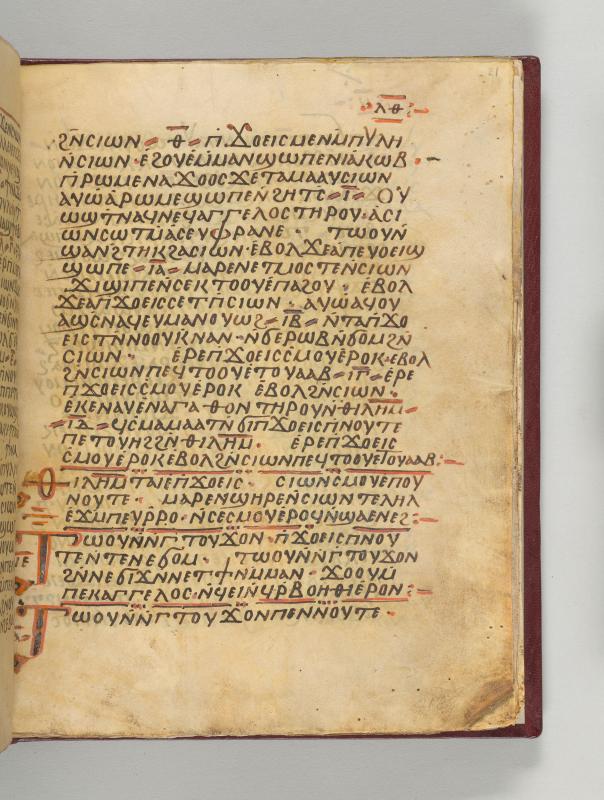 ⲗ̅ⲑ̅
ϩⲛ̄ⲥⲓⲱⲛ = ⲑ̅ = ⲡ̄ϫⲟⲉⲓⲥⲙⲉⲛⲙ̄ⲡⲩⲗⲏ
ⲛ̄ⲥⲓⲱⲛ · ⲉϩⲟⲩⲉⲙ̄ⲙⲁⲛϣⲱⲡⲉⲛⲓⲁⲕⲱⲃ ·
ⲡ̄ⲣⲱⲙⲉⲛⲁϫⲟⲟⲥϫⲉⲧⲁⲙⲁⲁⲩⲥⲓⲱⲛ
ⲁⲩⲱⲁ̇ⲣⲱⲙⲉϣⲱⲡⲉⲛ̄ϩⲏⲧⲥ = ⲓ̅ = ⲟⲩ
ⲱϣⲧ̄ⲛⲁϥⲛⲉϥⲁⲅⲅⲉⲗⲟⲥⲧⲏⲣⲟⲩ · ⲁⲥⲓ
ⲱⲛⲥⲱⲧⲙ̄ⲁⲥⲉⲩⲫⲣⲁⲛⲉ · ⲧⲱⲟⲩⲛ̄
ϣⲁⲛϩⲧⲏⲕϩⲁⲥⲓⲱⲛ · ⲉⲃⲟⲗϫⲉⲁⲡⲉⲩⲟⲉⲓϣ
ϣⲱⲡⲉ = ⲓ̅ⲁ̅ = ⲙⲁⲣⲉⲛⲉⲧⲙⲟⲥⲧⲉⲛ̄ⲥⲓⲱⲛ
ϫⲓϣⲓⲡⲉⲛ̄ⲥⲉⲕⲧⲟⲟⲩⲉⲡⲁϩⲟⲩ · ⲉⲃⲟⲗ
ϫⲉⲁⲡ̄ϫⲟⲉⲓⲥⲥⲉⲧⲡ̄ⲥⲓⲱⲛ · ⲁⲩⲱⲁϥⲟⲩ
ⲁϣⲥⲛⲁϥⲉⲩⲙⲁⲛⲟⲩⲱϩ = ⲓ̅ⲃ̅ = ⲛ̄ⲧⲁⲡ̄ϫⲟ
ⲉⲓⲥⲧⲛ̄ⲛⲟⲟⲩⲕⲛⲁⲛ · ⲛ̄ϭⲉⲣⲱⲃⲛ̄ϭⲟⲙϩⲛ̄
ⲥⲓⲱⲛ · ⲉⲣⲉⲡ̄ϫⲟⲉⲓⲥⲥⲙⲟⲩⲉ̇ⲣⲟⲕ · ⲉⲃⲟⲗ
ϩⲛ̄ⲥⲓⲱⲛⲡⲉϥⲧⲟⲟⲩⲉⲧⲟⲩⲁⲁⲃ = ⲓ̅ⲅ̅ = ⲉⲣⲉ
ⲡ̄ϫⲟⲉⲓⲥⲥⲙⲟⲩⲉ̇ⲣⲟⲕ ⲉⲃⲟⲗϩⲛ̄ⲥⲓⲱⲛ ·
ⲉⲕⲉⲛⲁⲩⲉ̇ⲛⲁⲅⲁⲑⲟⲛⲧⲏⲣⲟⲩⲛ̄ⲑⲓⲗⲏⲙ̅
= ⲓ̅ⲇ̅ = ϥⲥⲙⲁⲙⲁⲁⲧⲛ̄ϭⲓⲡ̄ϫⲟⲉⲓⲥⲡⲛⲟⲩⲧⲉ
ⲡⲉⲧⲟⲩⲏϩϩⲛ̄ⲑⲓⲗⲏⲙ̅ · ⲉⲣⲉⲡ̄ϫⲟⲉⲓⲥ
ⲥⲙⲟⲩⲉ̇ⲣⲟⲕⲉⲃⲟⲗϩⲛ̄ⲥⲓⲱⲛⲡⲉϥⲧⲟⲟⲩⲉⲧⲟⲩⲁⲁⲃ :
ⲑⲓⲗⲏⲙ̅ⲧⲁⲓⲉⲡ̄ϫⲟⲉⲓⲥ · ⲥⲓⲱⲛⲥⲙⲟⲩⲉⲡⲟⲩ
ⲛⲟⲩⲧⲉ · ⲙⲁⲣⲉⲛϣⲏⲣⲉⲛ̄ⲥⲓⲱⲛⲧⲉⲗⲏⲗ
ⲉϫⲙ̄ⲡⲉⲩⲣ̄ⲣⲟ · ⲛ̄ⲥⲉⲥⲙⲟⲩⲉ̇ⲣⲟϥⲛ̄ϣⲁⲉⲛⲉϩ :
ⲧⲱⲟⲩⲛ̄ⲛⲅ̄ⲧⲟⲩϫⲟⲛ · ⲡ̄ϫⲟⲉⲓⲥⲡⲛⲟⲩ
ⲧⲉⲛ̄ⲧⲉⲛⲉϭⲟⲙ · ⲧⲱⲟⲩⲛ̄ⲛⲅ̄ⲧⲟⲩϫⲟⲛ
ϩⲛ̄ⲛⲉϭⲓϫⲛ̄ⲛⲉⲧϯⲛⲙ̄ⲙⲁⲛ · ϫⲟⲟⲩⲙ̄
ⲡⲉⲕⲁⲅⲅⲉⲗⲟⲥ · ⲛ̄ϥⲉⲓⲛ̄ϥⲣ̄ⲃⲟⲏⲑⲓⲉ̇ⲣⲟⲛ :
ⲧⲱⲟⲩⲛ̄ⲛⲅ̄ⲧⲟⲩϫⲟⲛⲡⲉⲛⲛⲟⲩⲧⲉ ·